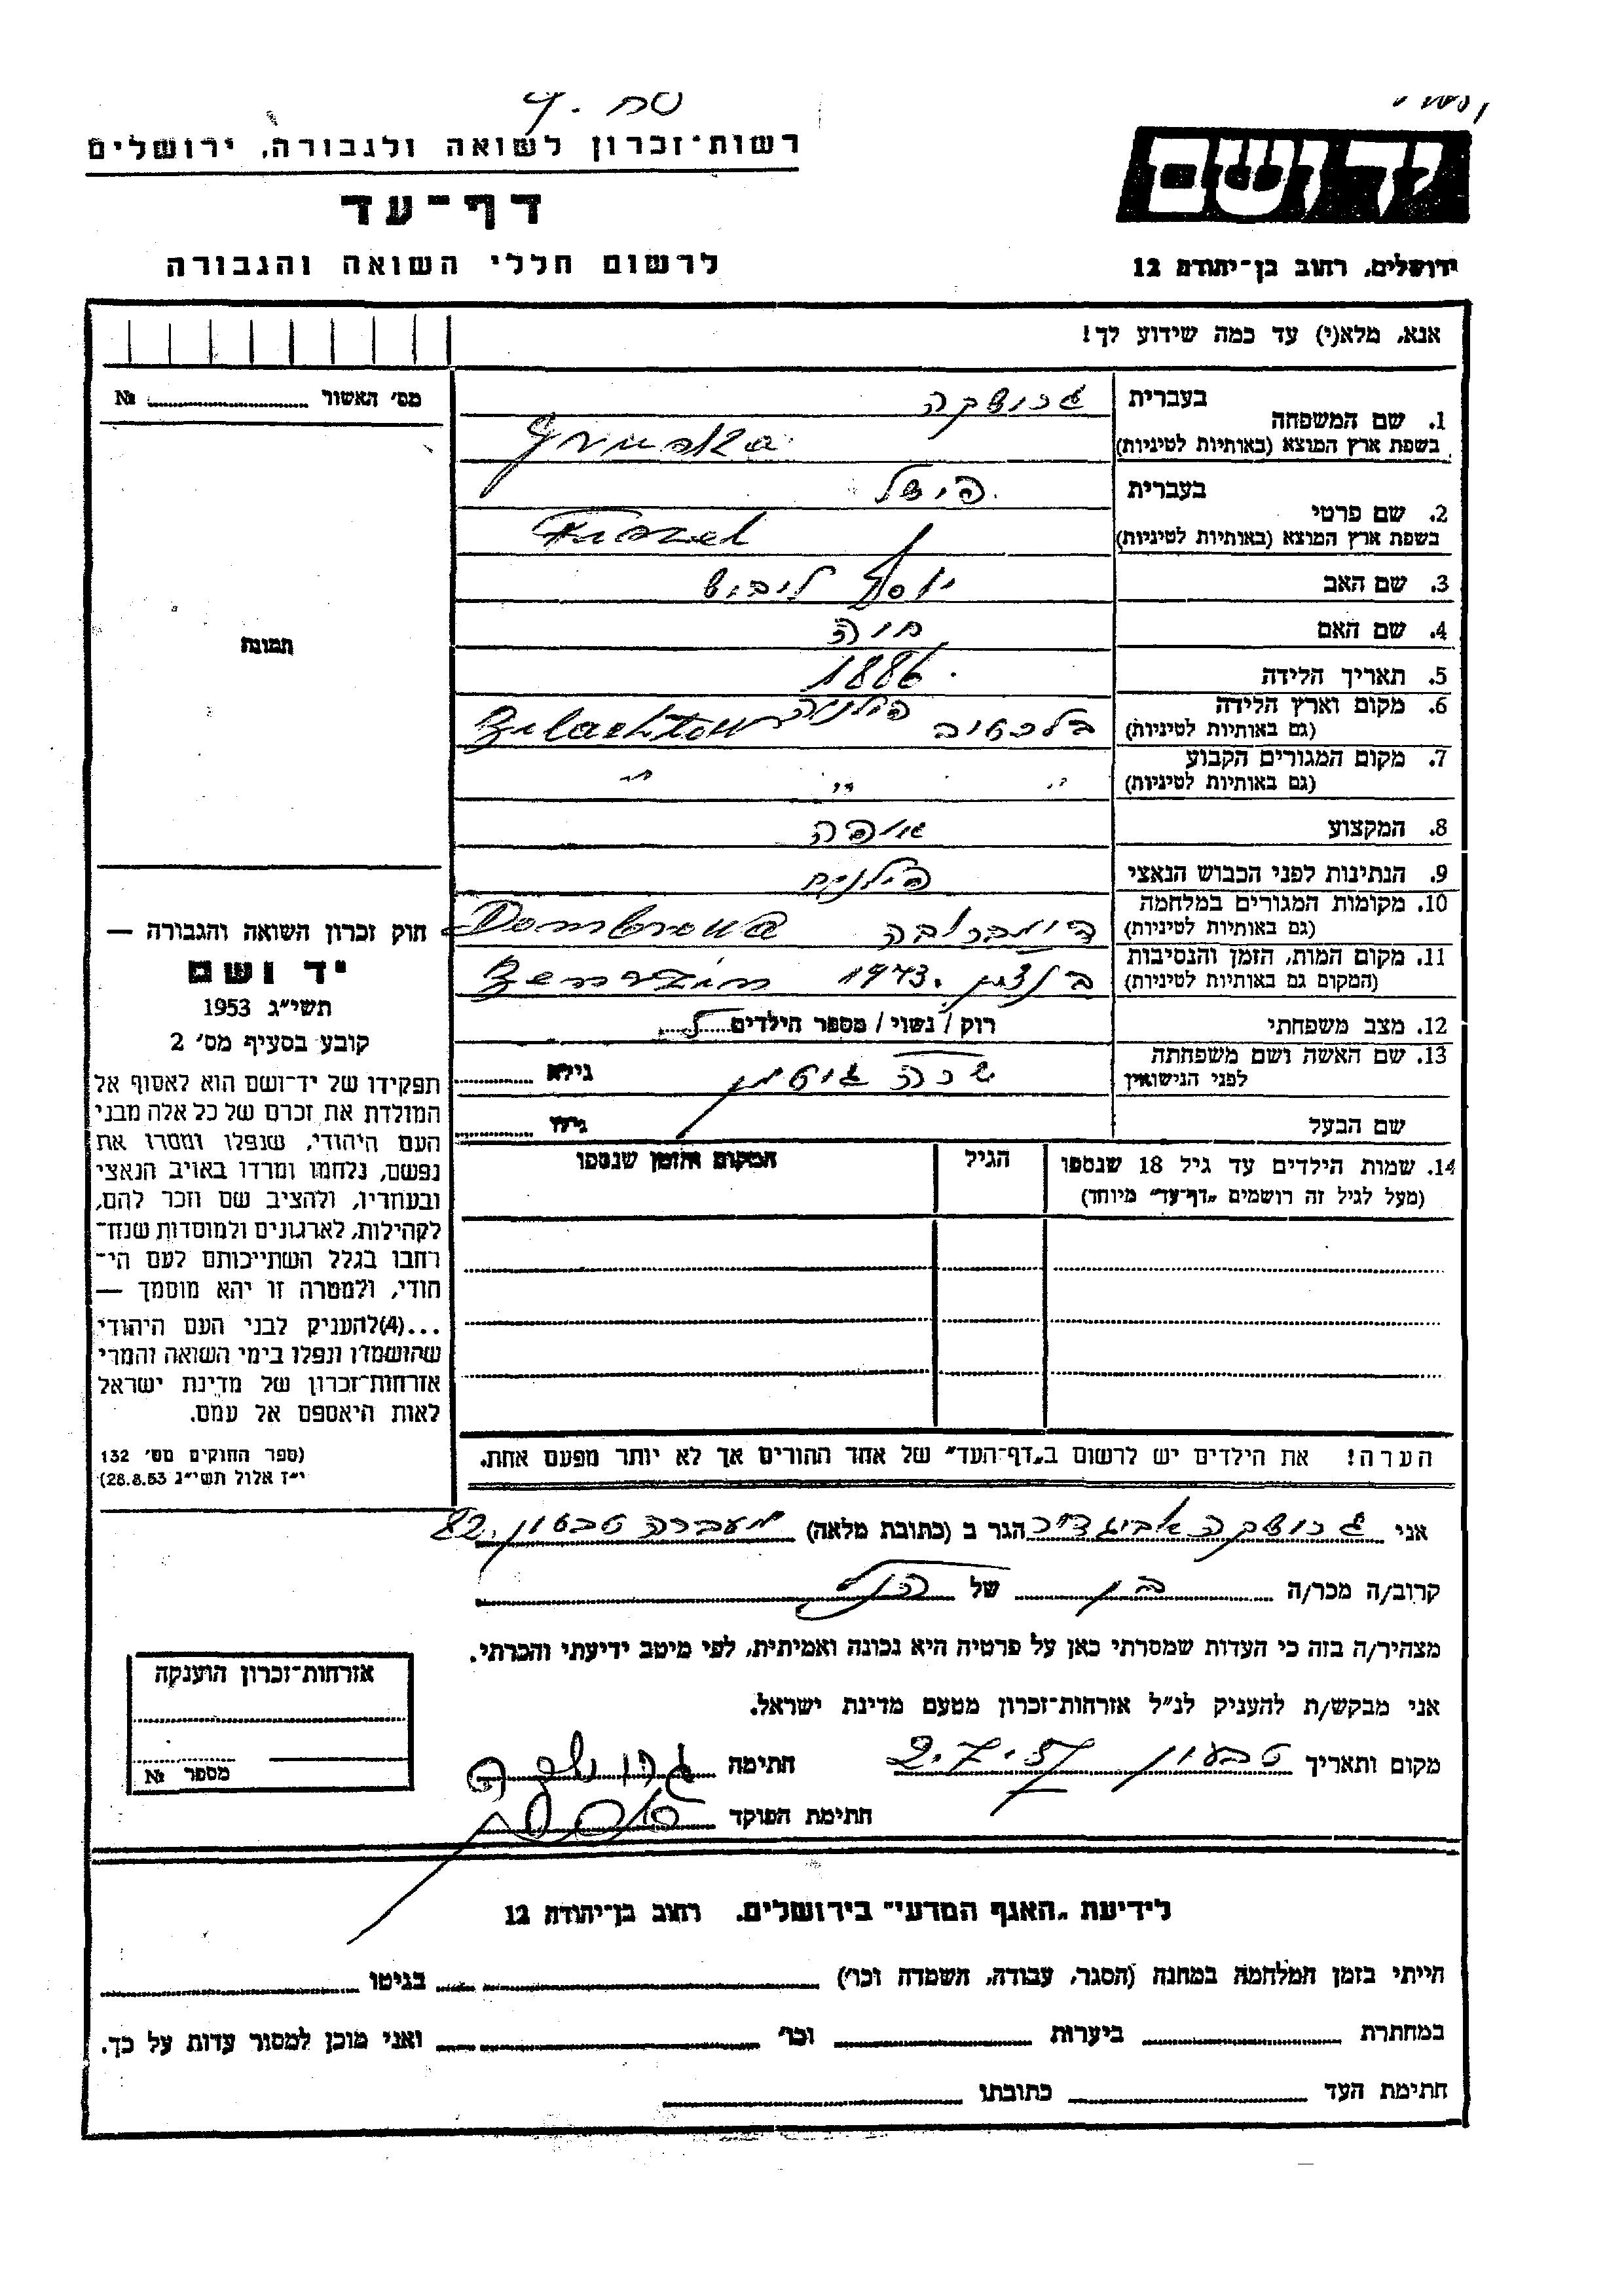 רשות־זכרון לשואה ולגבורה, ירושלים
דף־עד
לרשום חללי השואה והגבורה
יד ושם
ירושלים, רחוב בן־יהודה 12
אנא, מלא(י) עד כמה שידוע לך!
מס' האשור № 
1. שם המשפחה
בעברית גרושקה
בשפת ארץ המוצא (באותיות לטיניות) Gruszka
2. שם פרטי
בעברית פישל
בשפת ארץ המוצא (באותיות לטיניות) Fiszel
3. שם האב יוסף ליבוש
4. שם האם חוה
5. תאריך הלידה 1886
6. מקום וארץ הלידה פולניה
(גם באותיות לטיניות)
7. מקום המגורים הקבוע " " "
(גם באותיות לטיניות)
8. המקצוע אופה
9. הנתינות לפני הכבוש הנאצי
10. מקומות המגורים במלחמה
(גם באותיות לטיניות) דומברובה Dombrowa
11. מקום המות, הזמן והנסיבות
(המקום גם באותיות לטיניות) בנדצין 1943. Bendzin
12. מצב משפחתי רוק / נשוי / מספר הילדים
13. שם האשה ושם משפחתה
לפני הנישואין שרה גוטמן גילא
שם הבעל גילו
14. שמות הילדים עד גיל 18 שנספו הגיל המקום והזמן שנספו
(מעל לגיל זה רושמים „דף־עד" מיוחד)
הערה! את הילדים יש לרשום ב„דף־העד" של אחד ההורים אך לא יותר מפעם אחת.
תמונה
חוק זכרון השואה והגבורה —
יד ושם
תשי״ג 1953
קובע בסעיף מס' 2
תפקידו של יד־ושם הוא לאסוף אל
המולדת את זכרם של כל אלה מבני
העם היהודי, שנפלו ומסרו את
נפשם, נלחמו ומרדו באויב הנאצי
ובעוזריו, ולהציב שם וזכר להם,
לקהילות, לארגונים ולמוסדות שנח־
רבו בגלל השתייכותם לעם הי־
הודי, ולמטרה זו יהא מוסמך —
...(4) להעניק לבני העם היהודי
שהושמדו ונפלו בימי השואה והמרי
אזרחות־זכרון של מדינת ישראל
לאות היאספם אל עמם.
(ספר החוקים מס' 132
י״ז אלול תשי״ג 28.8.53)
אני גרושקה אביגדור הגר ב (כתובת מלאה) מעברה טבעון 82.
קרוב/ה מכר/ה בן של הנ״ל
מצהיר/ה בזה כי העדות שמסרתי כאן על פרטיה היא נכונה ואמיתית, לפי מיטב ידיעתי והכרתי.
אני מבקש/ת להעניק לנ״ל אזרחות־זכרון מטעם מדינת ישראל.
מקום ותאריך טבעון 2.7.57 חתימה גרושקה
חתימת הפוקד
אזרחות־זכרון הוענקה
מספר №
לידיעת „האגף המדעי" בירושלים. רחוב בן־יהודה 12
הייתי בזמן המלחמה במחנה (הסגר, עבודה, השמדה וכו') בגיטו
במחתרת ביערות וכו' ואני מוכן למסור עדות על כך.
חתימת העד כתובתו